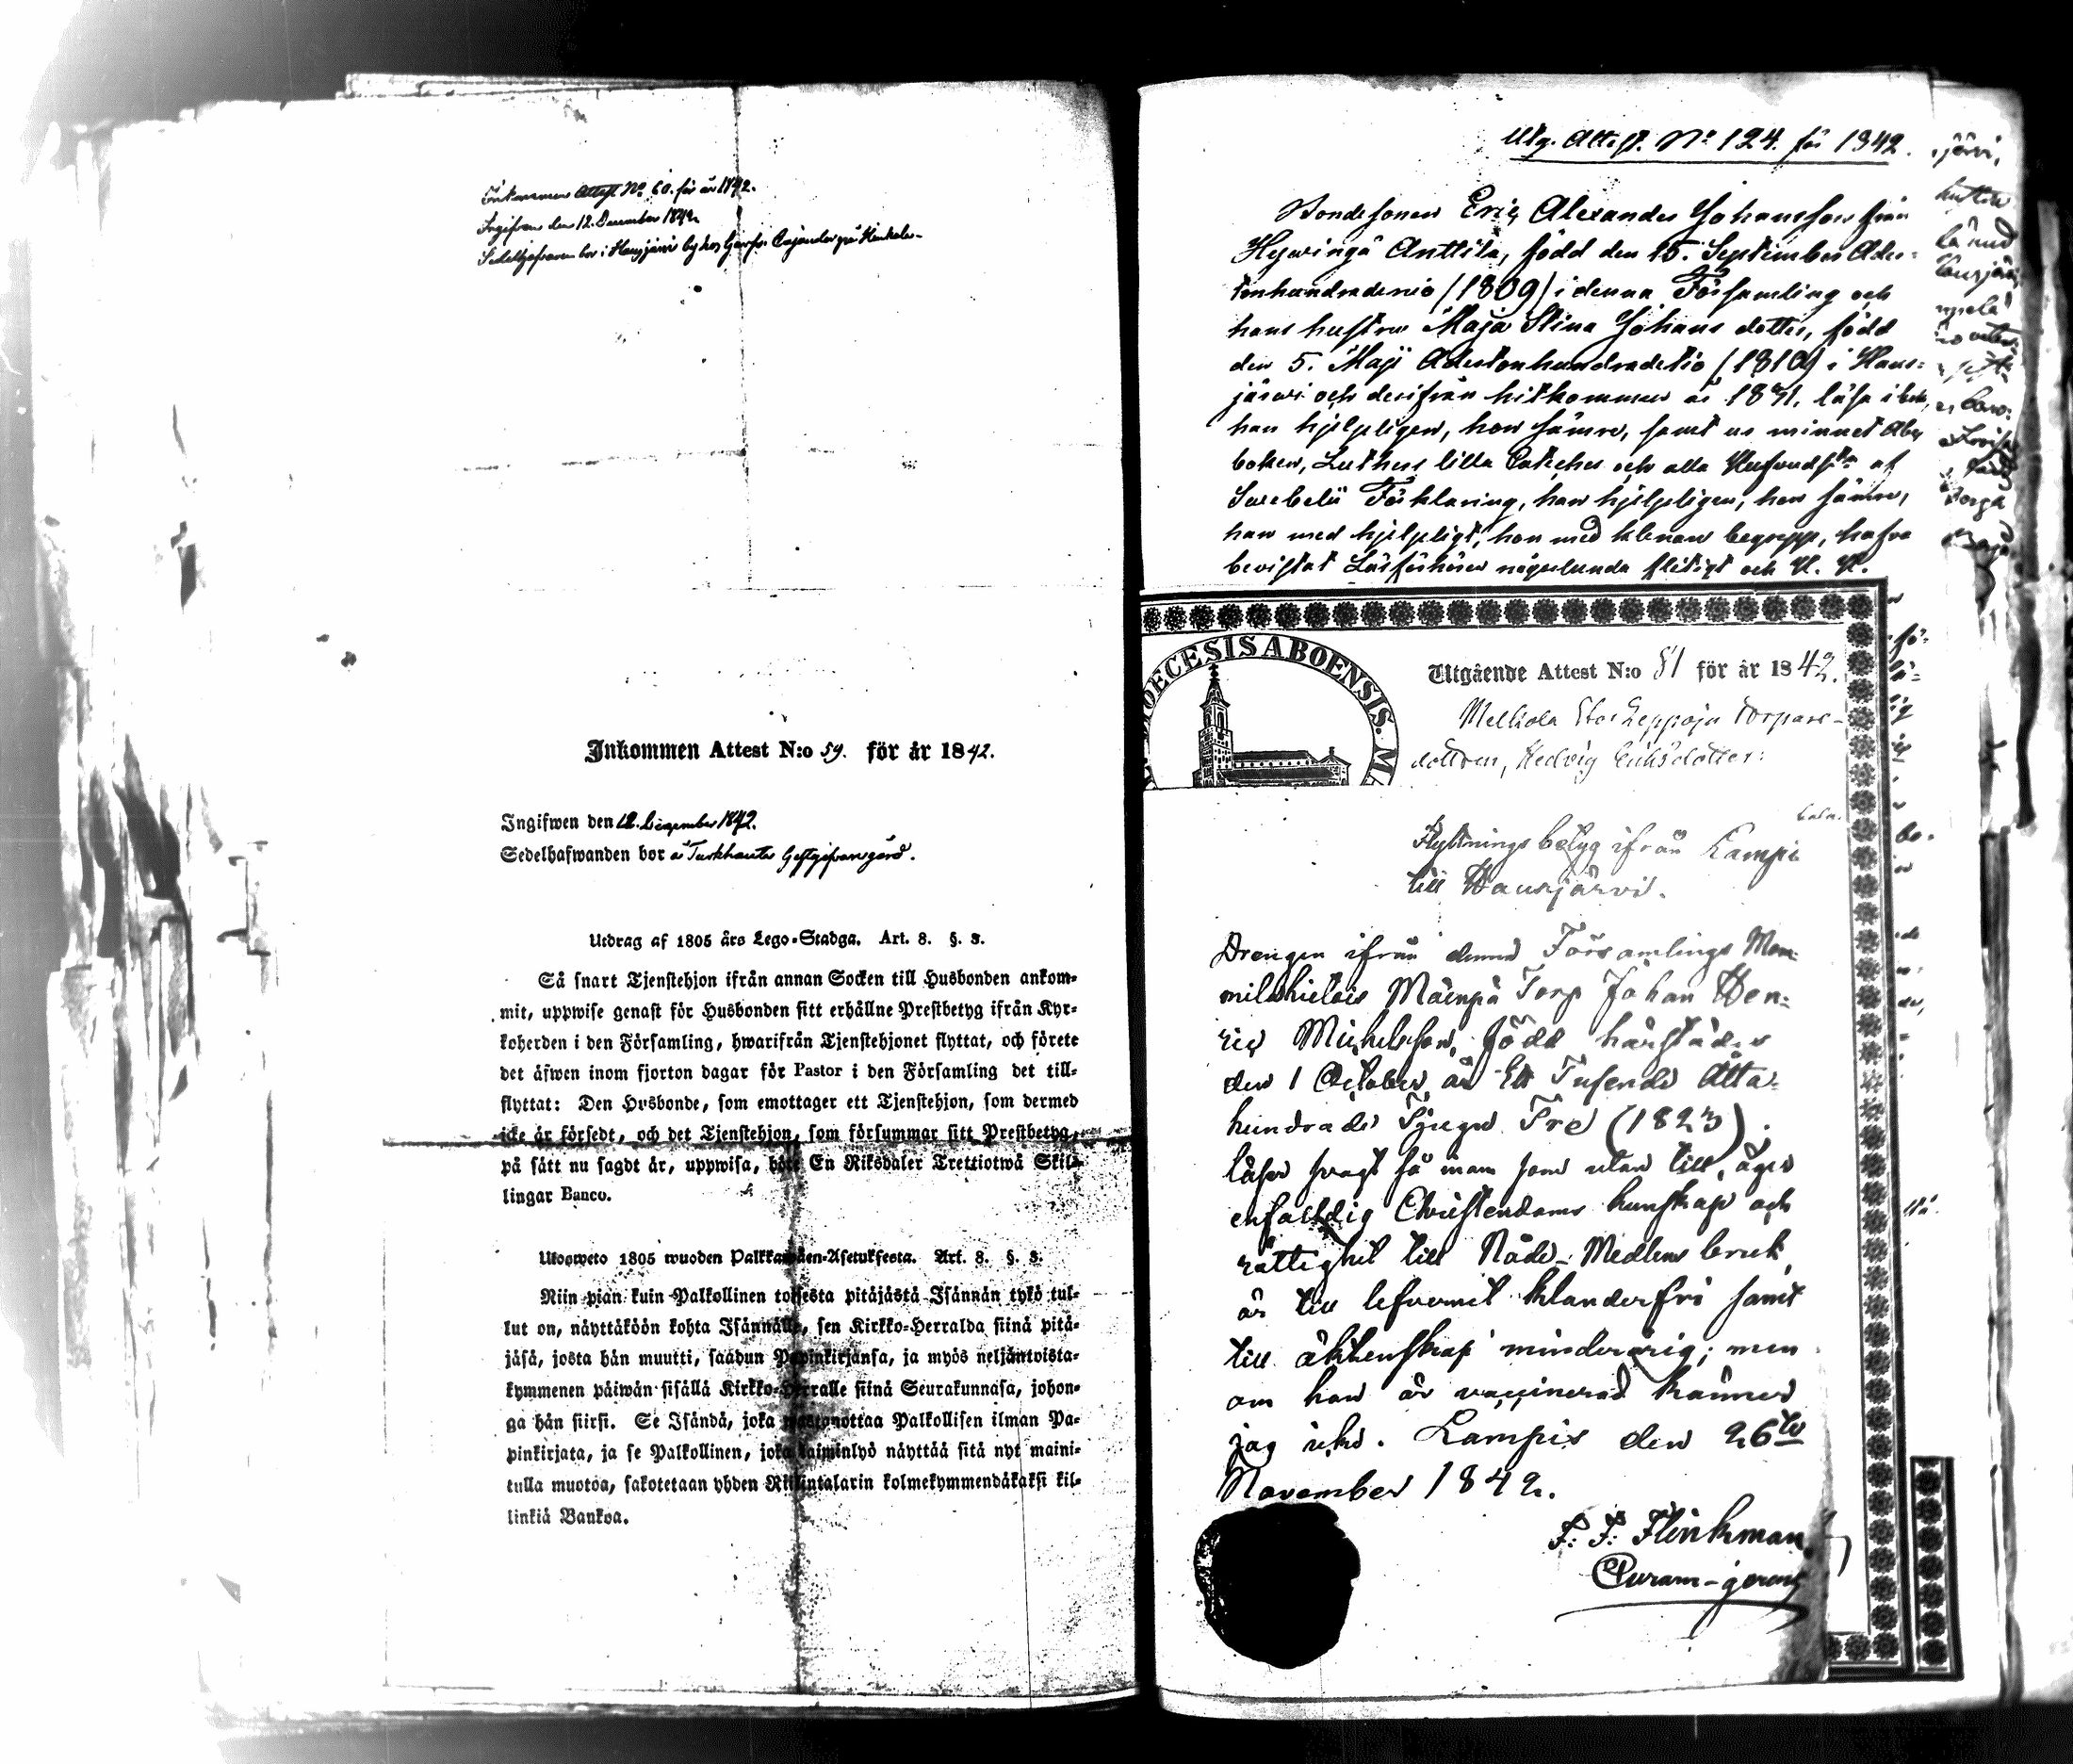 Inkommen Attest No 60. för år 1842.
Ingifven den 12. December 1842.
Sedelhafvaren bor i Hausjärvi by hos
Inkommen Attest N:o 59. för år 1842.
Ingifwen den 12. December 1842.
Sedelhafwanden bor å Turkhauta Gestgifvaregård.
Utdrag af 1805 års Lego-Stadga. Art. 8. §. 3.
Så snart Tjenstehjon ifrån annan Socken till Husbonden ankom-
mit, uppwise genast för Husbonden sitt erhållne Prestbetyg ifrån Kyr-
koherden i den Församling, hwarifrån Tjenstehjonet flyttat, och förete
det äfwen inom fjorton dagar för Pastor i den Församling det till-
flyttat: Den Husbonde, som emottager ett Tjenstehjon, som dermed
icke är försedt, och det Tjenstehjon, som försummar sitt Prestbetyg,
på sätt nu sagdt är, uppwisa, böte En Riksdaler Trettiotwå Skil-
lingar Banco.
Ulosweto 1805 wuoden Palkkawäen-Asetuksesta. Art. 8. §. 3.
Niin pian kuin Palkollinen toisesta pitäjästä Isännän tykö tul-
lut on, näyttäköön kohta Isännälle, sen Kirkko-Herralda siinä pitä-
jäsä, josta hän muutti, saadun Papinkirjansa, ja myös neljäntoista-
kymmenen päiwän sisällä Kirkko-Herralle siinä Seurakunnasa, johon-
ga hän siirsi. Se Isändä, joka wastanottaa Palkollisen ilman Pa-
pinkirjata, ja se Palkollinen, joka laiminlyö näyttää sitä nyt maini-
tulla muotoa, sakotetaan yhden Riksintalarin kolmekymmendäkaksi kil-
linkiä Bankoa.
Utg. Attest. No 124. för 1842.
Bondesonen Eric Alexander Johansson från
Hyvingä Anttila, född den 15. September Ader-
tonhundradenio (1809) i denna Församling och
hans hustru Maja Stina Johans dotter, född
den 5. Maji Adertonhundradetio (1810) i Haus-
järvi och derifrån hitkommen år 1831, läsa i bok,
han hjelpligen, hon sämre, samt ur minnet Abc
boken, Luthers lilla Cateches och alla af
Svebelii Förklaring, han hjelpligen, hon sämre,
han med hjelpligt, hon med klenare begrepp, hafva
bevistat Läsförhören någorlunda flitigt och H. H.
DIOECESIS ABOENSIS. M
Utgående Attest N:o 81 för år 1842.
Mellola Stor Leppoja Torpare-
dottren, Hedvig Eriksdotter:
Flyttnings betyg ifrån Lampi
till Hausjärvi.
Drengen ifrån denna Församlings Mom-
milakielois Mäenpä Torp Johan Hen-
ric Michelsson, född härstädes
den 1 October år Ett Tusende Åtta-
hundrade Tjugu Tre (1823).
läser svagt så inom som utan till, äger
enfaldig Christendoms kunskap och
rättighet till Nåde-Medlens bruk,
är till lefvernet klanderfri samt
till äktenskap minderårig; men
om han är vaccinerad känner
jag icke. Lampis den 26te
November 1842.
F. F. Flinkman
Curam-gerens